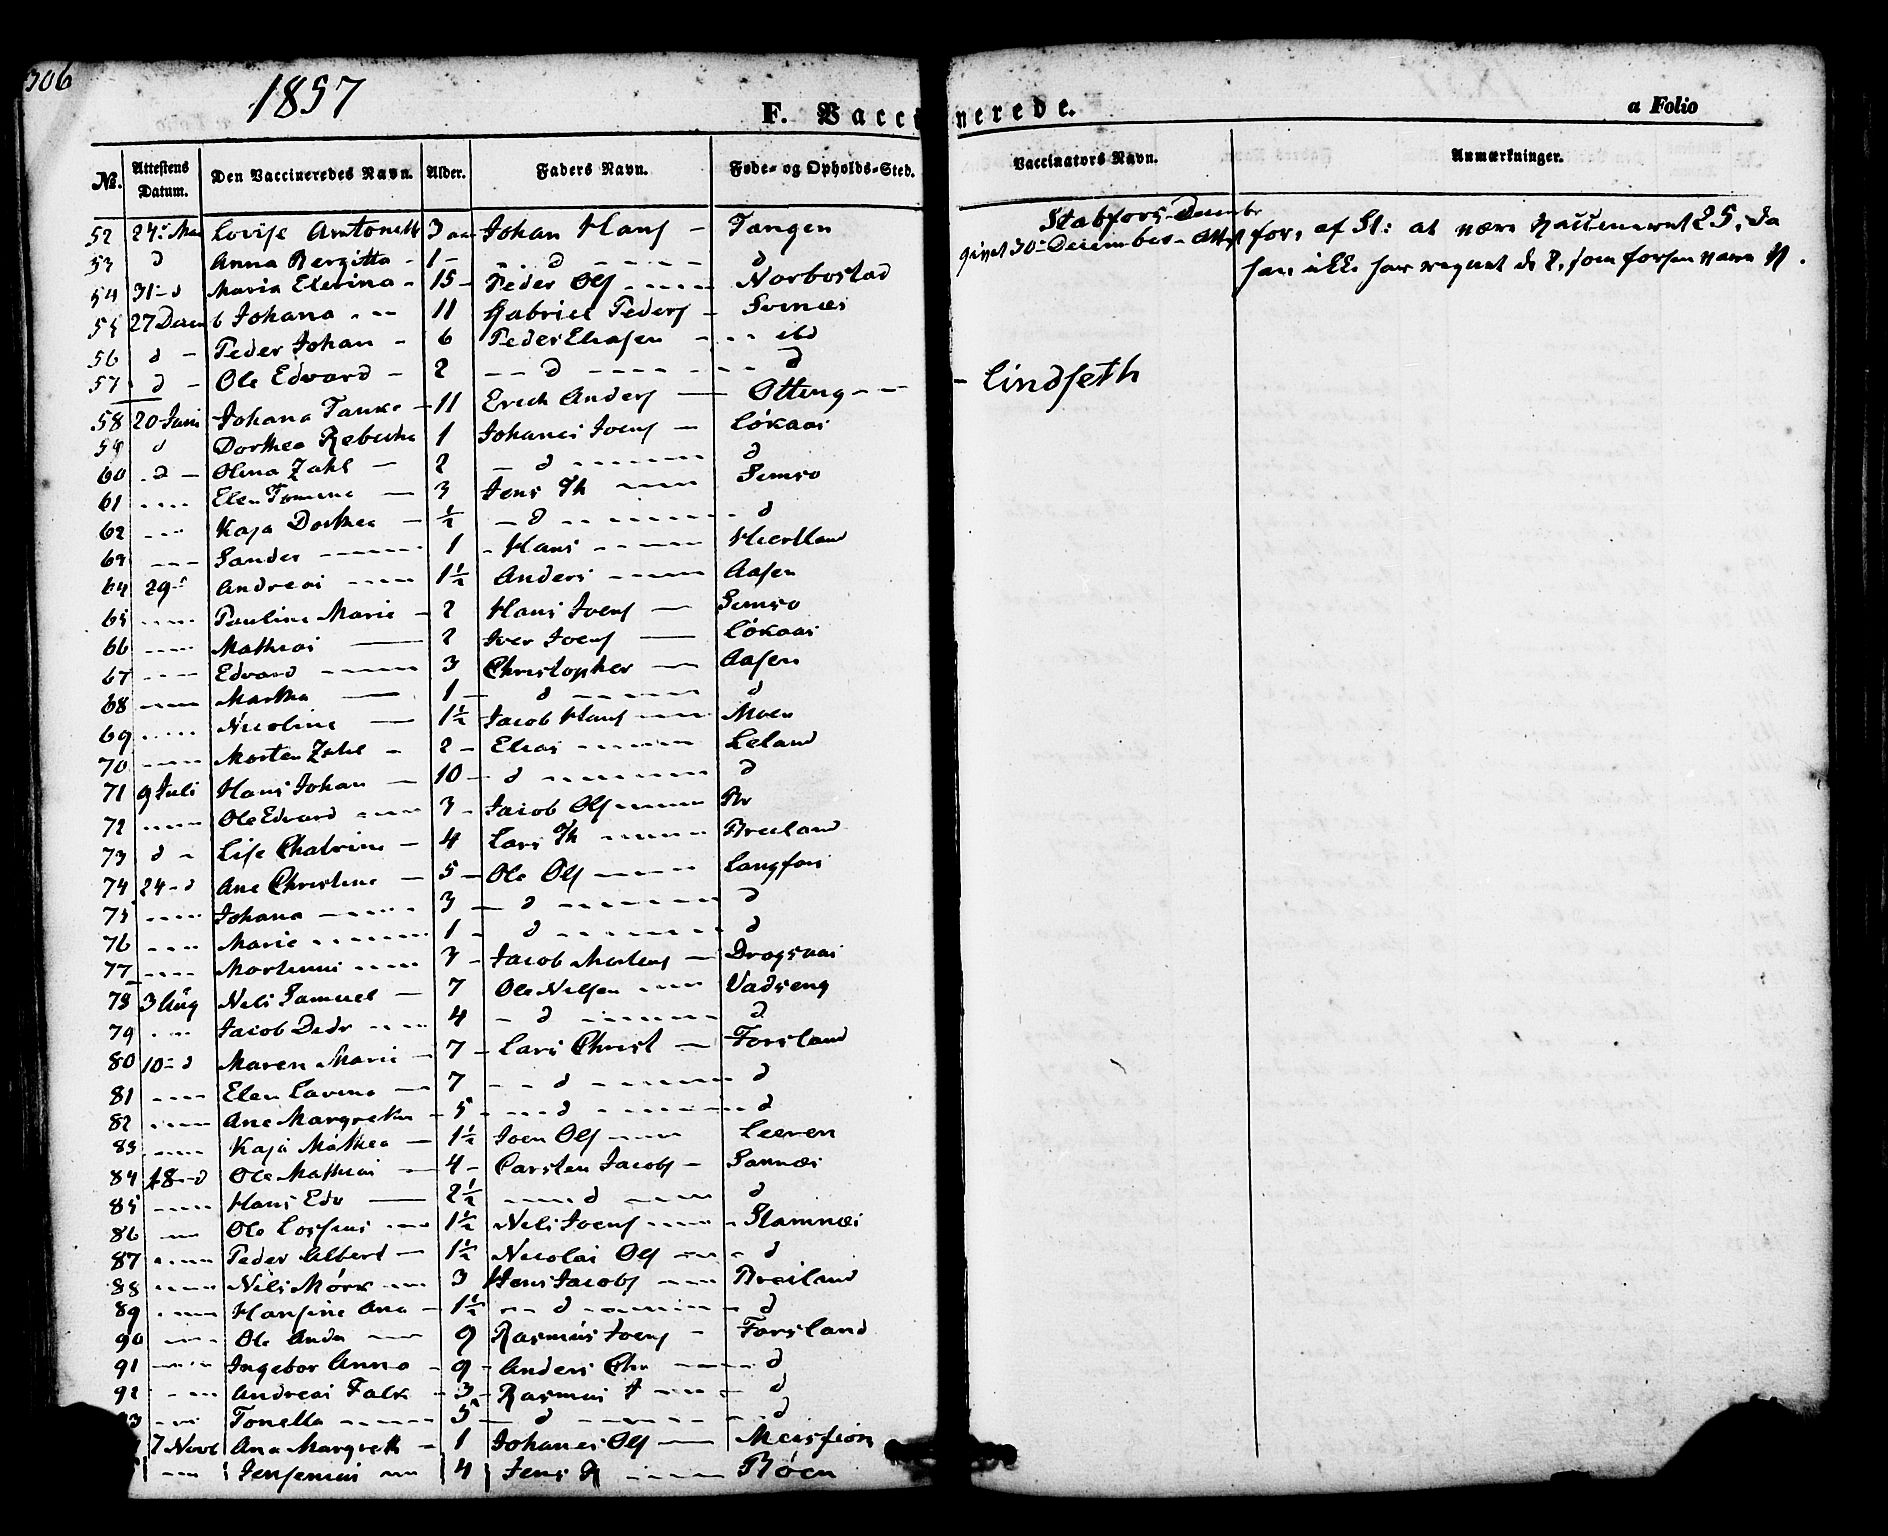 306
1857
F. Vaccinerede.
a Folio
No. Attestens Datum. Den Vaccineredes Navn. Alder. Faders Navn. Føde- og Opholds-Sted. Vaccinators Navn. Anmærkninger.
52 24 Mai Lovise Antonett 3 aar Johan Hansf - Tangen
53 d Anna Bergitta - 1 - d d
54 31 - d Maria Elerina - 15 - Peder Olsf Norbostad
55 27 Decemb Johana 11 Gabriel Pedersf - Svinæs
56 d - Peder Johan - 6 Peder Eliasen ibd
57 d - Ole Edvard - 2 d d
58 20 Juni Johana Tanke - 11 Erich Andersf Otteng
59 d Dorthea Rebecka 1 Johanes Joensf - Lókaas
60 d - Olina Zahl - 2 - d d
61 Elen Tomine - 3 Jens Th Semso
62 Kaja Dorthea - ½ - d d
63 Sander 1 - Hans Hiertland
64 29 d Andreas 1½ Anders Aasen
65 Pauline Marie - 2 Hans Joensf - Semso
66 Mathias 2 Iver Joensf - Lókaas
67 Edvard 3 Christopher - Aasen
68 Martha 1 - d d
69 Nicoline - 1½ Jacob Hansf Moen
70 Morten Zahl - 2 - Elias Leland
71 9 Juli Hans Johan - 10 - d d
72 Ole Edvard 3 - Jacob Olsf
73 d - Lise Chatrine - 4 Lars Th Breiland
74 24 - d Ane Christine - 5 - Ole Olsf Langfors
75 Johana 3 - d d
76 Marie 1 - d d
77 Mortinus 3 - Jacob Mortensf - Dragsaas
78 3 Aug Nels Samuel - 7 Ole Nilsen Vadseng
79 Jacob Dedr 4 - d d
80 10 - d Maren Marie - 7 - Lars Christ - Forsland
81 Elen Lavina - 7 - d d
82 Ane Margrethe - 5 - d d
83 Kaja Mathea - 1½ Joen Olsf Leeren
84 18 - d Ole Mathias 4 - Carsten Jacobsf - Sannæs
85 Hans Edv 2½ d d
86 Ole 1½ Nils Joensf - Stamnæs
87 Peder Albert - 1½ Nicolai Olsf - d
88 Nils Mörk 3 Hans Jacobsf Breiland
89 Hansine Ana - 1½ d d
90 Ole Andr 9 Rasmus Joensf - Forsland
91 Ingebor Anna - 9 - Anders Chr d
92 Andreas Falk - 3 - Rasmus J d
3 Tonella 5 - d d
7 Novb Ana Margreth - 1 Johanes Olsf
Jensenius 4 Jens Röen
Stabfors December
givet 30 December - Attest for, af St: at være Vaccineret 25, da
han ikke har regnet de 2, som forhen være
- Lindseth